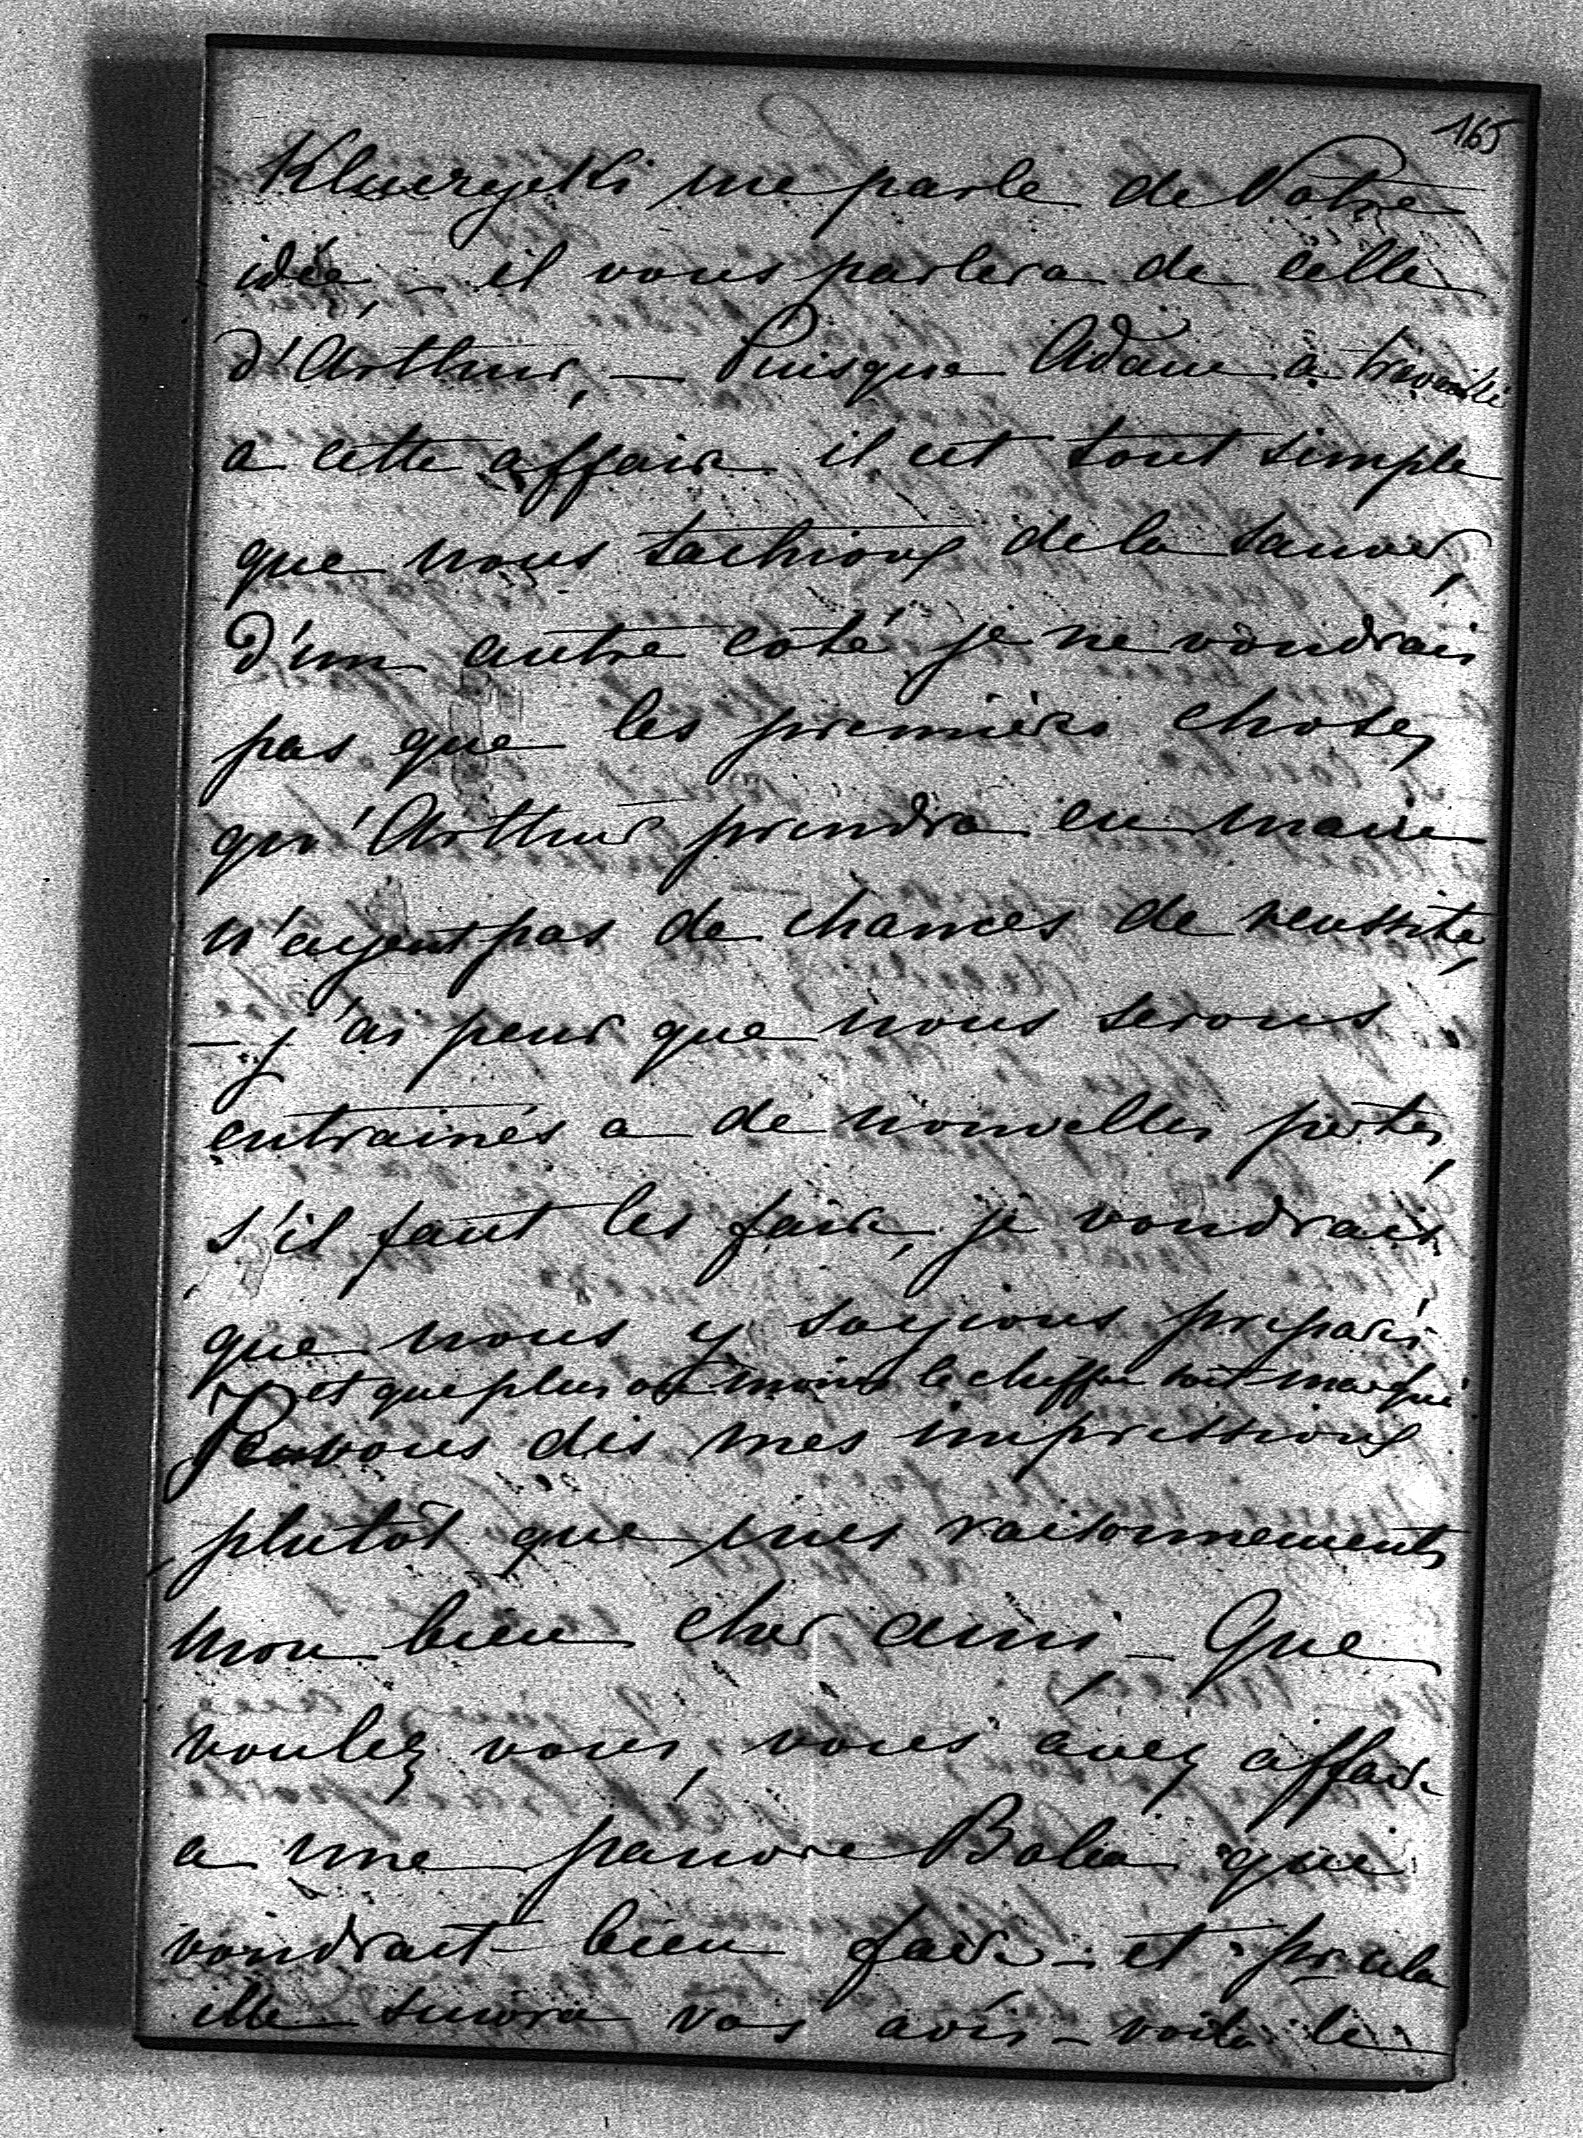 165
Kluczycki me parle de Votre
idée, – il vous parlera de celle
d'Arthur, – Puisque Adam a travaillé
a cette affaire il est tout simple
que nous tachions de la sauver,
d'un autre coté je ne voudrais
pas que les premières choses
qu'Arthur prendra en main
n'ayent pas de chances de reussite,
– j'ai peur que nous serons
entrainés a de nouvelles pertes,
s'il faut les faire, je voudrais
que nous y soyions preparés
et que plus ou moins le chiffre soit marqué
Je vous dis mes impressions
plutôt que mes raisonnements
mon bien cher ami, – Que
voulez vous, vous avez affaire
a une pauvre Balia qui
voudrait bien faire – et pr cela
elle suivra vos avis – voila le